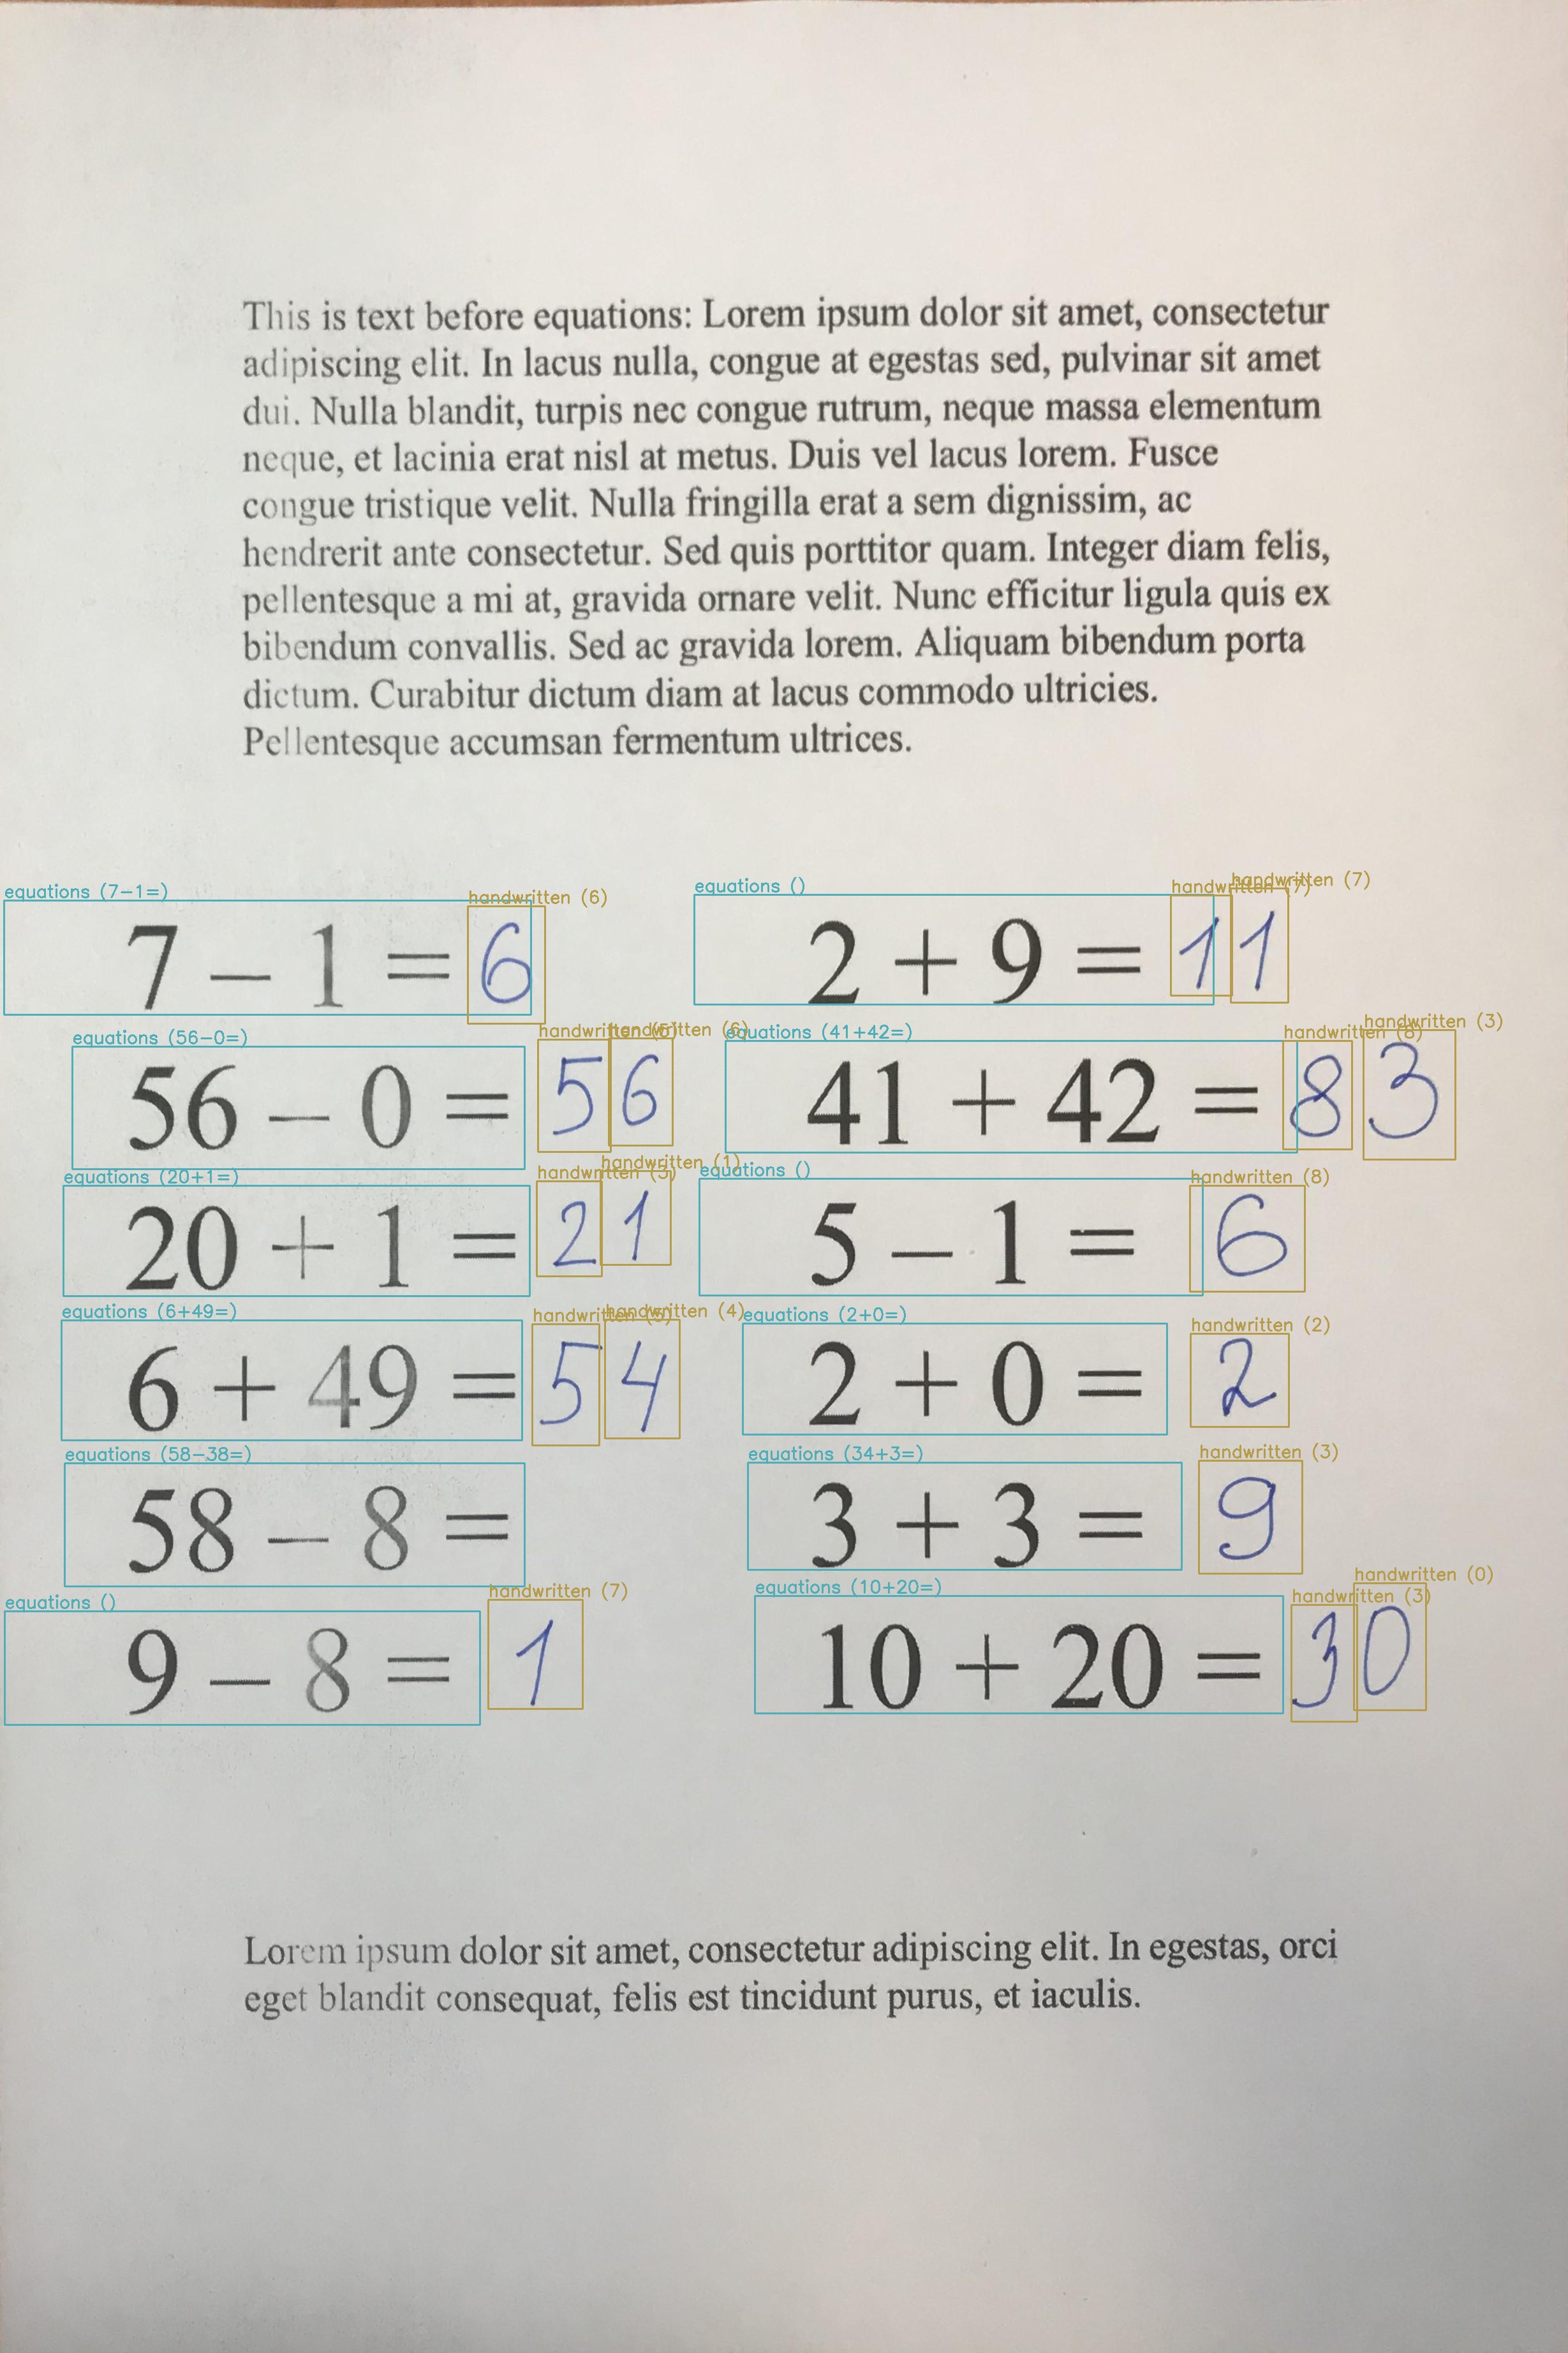 This is text before equations: Lorem ipsum dolor sit amet, consectetur
adipiscing elit. In lacus nulla, congue at egestas sed, pulvinar sit amet
dui. Nulla blandit, turpis nec congue rutrum, neque massa elementum
neque, et lacinia erat nisl at metus. Duis vel lacus lorem. Fusce
congue tristique velit. Nulla fringilla erat a sem dignissim, ac
hendrerit ante consectetur. Sed quis porttitor quam. Integer diam felis,
pellentesque a mi at, gravida ornare velit. Nunc efficitur ligula quis ex
bibendum convallis. Sed ac gravida lorem. Aliquam bibendum porta
dictum. Curabitur dictum diam at lacus commodo ultricies.
Pellentesque accumsan fermentum ultrices.
equations (7-1=) handwritten (6) equations () handwritten (7) handwritten (7)
7 – 1 = 6 2 + 9 = 11
equations (56-0=) handwritten (5) handwritten (6) equations (41+42=) handwritten (8) handwritten (3)
56 – 0 = 56 41 + 42 = 83
equations (20+1=) handwritten (3) handwritten (1) equations () handwritten (8)
20 + 1 = 21 5 – 1 = 6
equations (6+49=) handwritten (5) handwritten (4) equations (2+0=) handwritten (2)
6 + 49 = 54 2 + 0 = 2
equations (58-38=) equations (34+3=) handwritten (3)
58 – 8 = 3 + 3 = 9
equations () handwritten (7) equations (10+20=) handwritten (3) handwritten (0)
9 – 8 = 1 10 + 20 = 30
Lorem ipsum dolor sit amet, consectetur adipiscing elit. In egestas, orci
eget blandit consequat, felis est tincidunt purus, et iaculis.